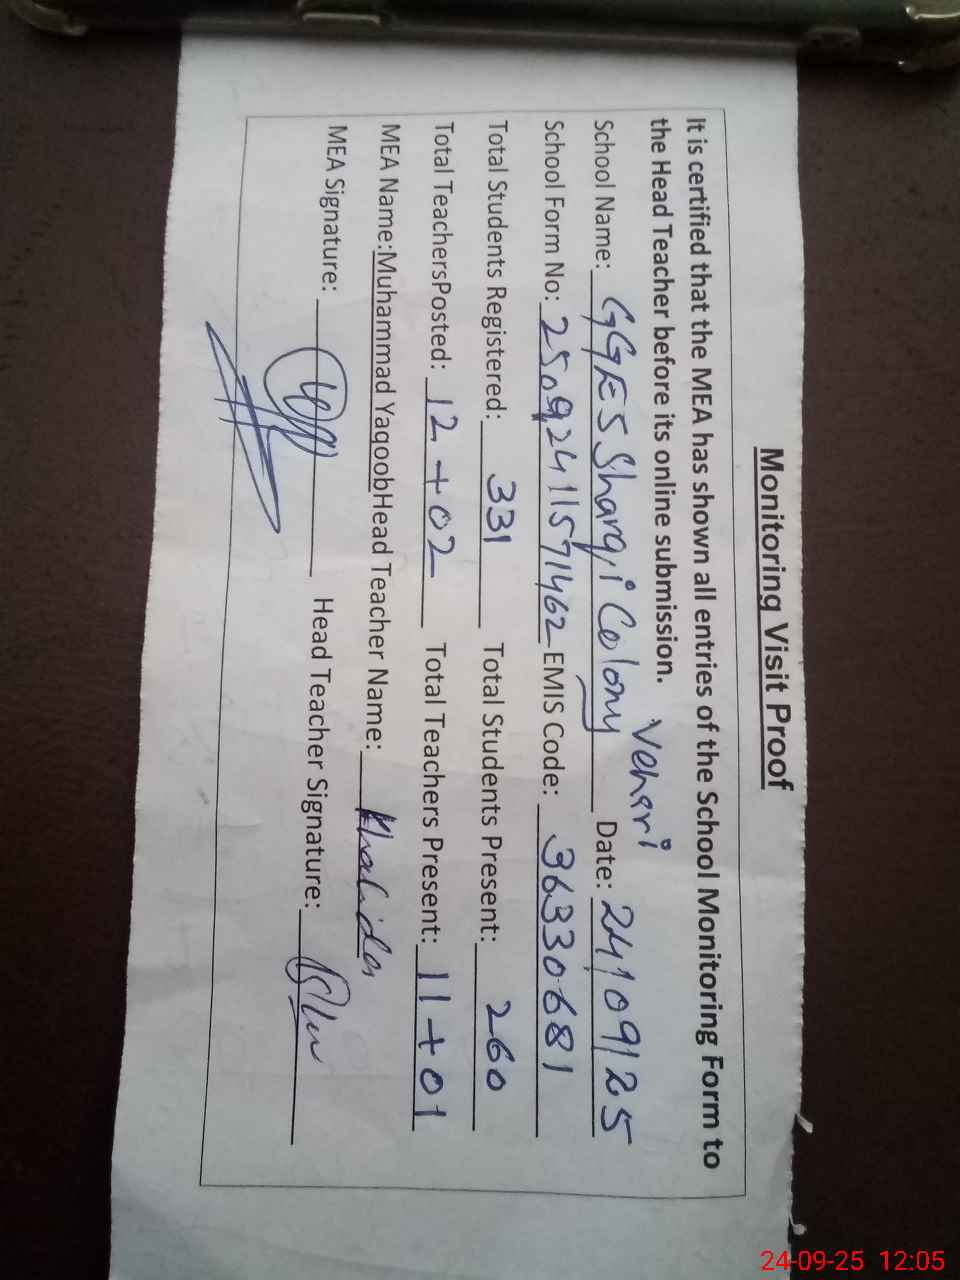 Monitoring Visit Proof
It is certified that the MEA has shown all entries of the School Monitoring Form to
the Head Teacher before its online submission.
Vehari
School Name: GGES Sharqi Colony Date: 24/09/25
School Form No: 25092411571462 EMIS Code: 36330681
Total Students Registered: 331 Total Students Present: 260
Total TeachersPosted: 12+02 Total Teachers Present: 11+01
MEA Name:Muhammad YaqoobHead Teacher Name: Khalida
MEA Signature: Head Teacher Signature:
24-09-25 12:05